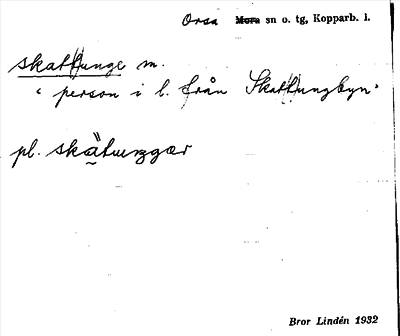 Orsa Mora sn o. tg, Kopparb. l.
skattunge m.
‘person i l. från Skattungbyn’
pl. skä̀tuŋgær
Bror Lindén 1932